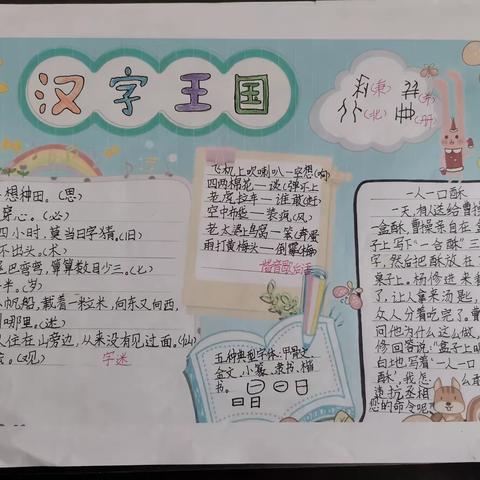 汉字王国
(束)
(北)
(册)
想种田。(思)
穿心。(必)
四小时,莫当日字猜。(旧)
不出头。(术)
尾巴弯弯,算算数目少三。(七)
半。(岁)
帆船,载着一粒米,向东又向西,
哪里。(迷)
人住在山旁边,从来没有见过面。(仙)
(观)
字迷
飞机上吹喇叭—空想(响)
四两棉花—谈(弹)不上
老虎拉车—谁敢(赶)
空中布袋—装疯(风)
老太婆上鸟窝—笨(奔)蛋
雨打黄梅头—倒霉(梅)
谐音歇后语
五种典型字体:甲骨文、
金文,小篆,隶书,楷
书。
日
一人一口酥
一天,有人送给曹操
一盒酥,曹操亲自在盒
子上写下“一合酥”三
字,然后把酥放在
桌子上。杨修进来看
了,让人拿来汤匙,
众人分着吃完了。曹
问他为什么这么做,
修回答说:“盒子上明
白地写着‘一人一口
酥’,我怎么敢
违抗丞相
您的命令呢?